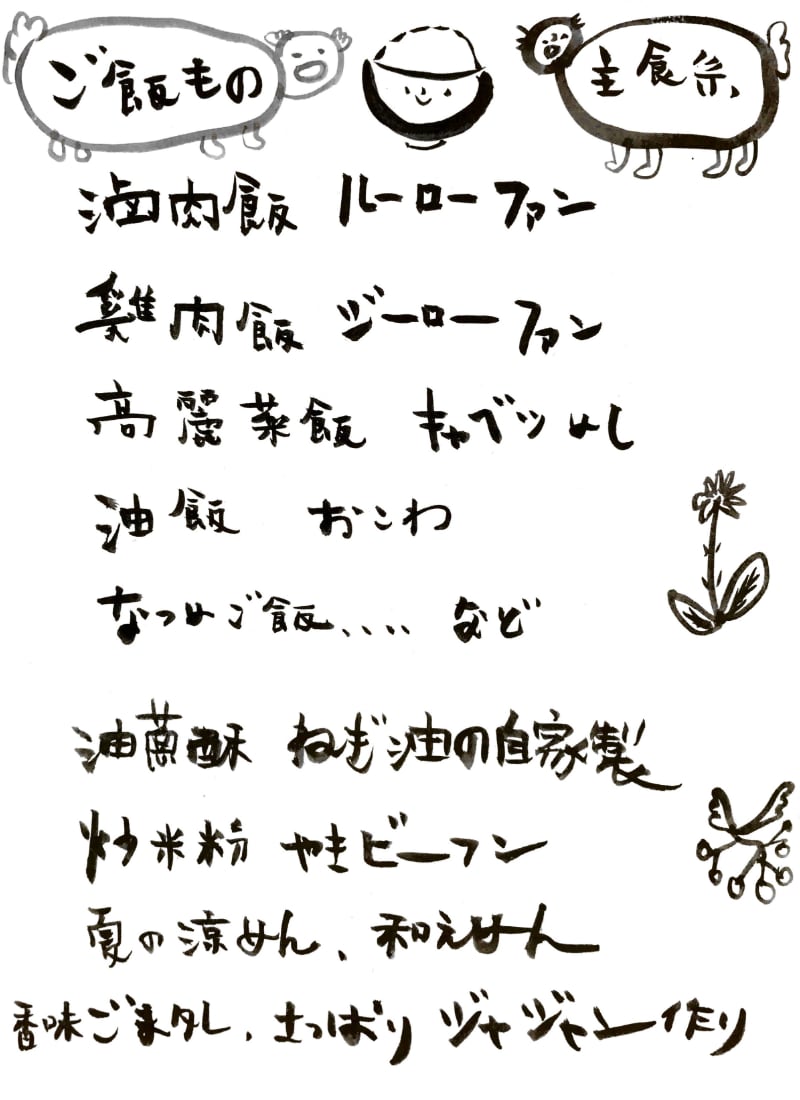 ご飯もの
主食祭
滷肉飯 ルーローファン
雞肉飯 ジーローファン
高麗菜飯 キャベツめし
油飯 おこわ
なつめご飯、、、、など
油蔥酥 ねぎ油の自家製
炒米粉 やきビーフン
夏の涼めん、和えめん
香味ごまダレ、さっぱり ジャジャン作り